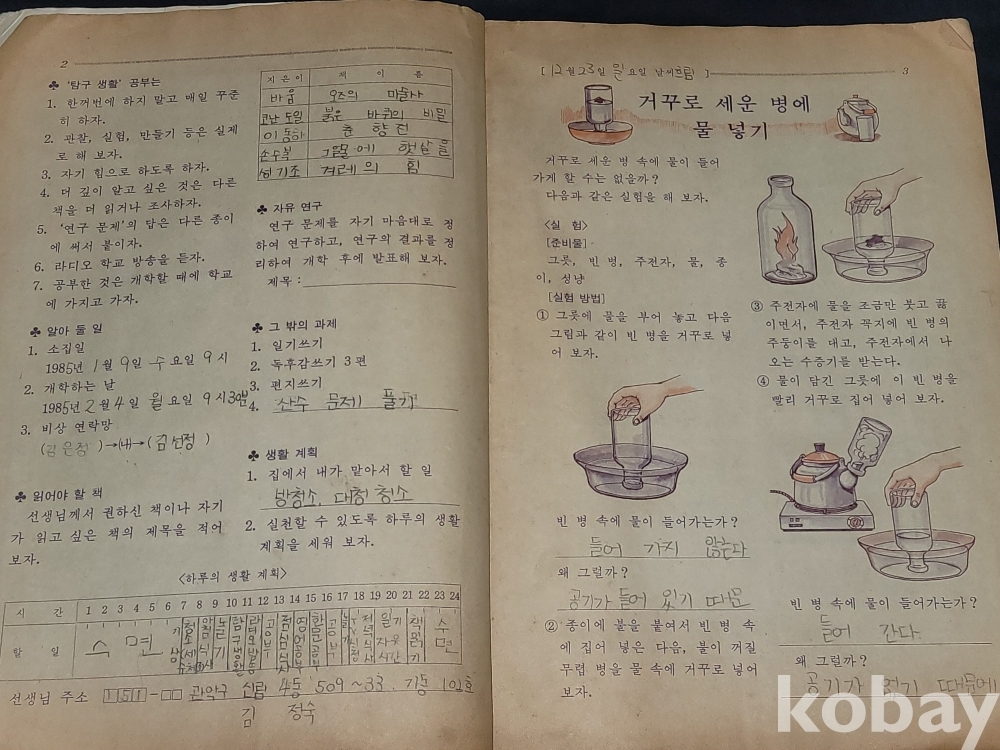 2
♣ '탐구 생활' 공부는
1. 한꺼번에 하지 말고 매일 꾸준
히 하자.
2. 관찰, 실험, 만들기 등은 실제
로 해 보자.
3. 자기 힘으로 하도록 하자.
4. 더 깊이 알고 싶은 것은 다른
책을 더 읽거나 조사하자.
5. '연구 문제'의 답은 다른 종이
에 써서 붙이자.
6. 라디오 학교 방송을 듣자.
7. 공부한 것은 개학할 때에 학교
에 가지고 가자.
♣ 알아 둘 일
1. 소집일
1985년 1월 9일 수요일 9시
2. 개학하는 날
1985년 2월 4일 월요일 9시 30분
3. 비상 연락망
(김은정)→(나)→(김선정)
♣ 읽어야 할 책
선생님께서 권하신 책이나 자기
가 읽고 싶은 책의 제목을 적어
보자.
지은이 책 이 름
바움 오즈의 마술사
코난 도일 붉은 바퀴의 비밀
이동하 춘향전
손수복 그늘에 햇살을
성기조 겨레의 힘
♣ 자유 연구
연구 문제를 자기 마음대로 정
하여 연구하고, 연구의 결과를 정
리하여 개학 후에 발표해 보자.
제목:
♣ 그 밖의 과제
1. 일기쓰기
2. 독후감쓰기 3편
3. 편지쓰기
4. 산수 문제 풀기
♣ 생활 계획
1. 집에서 내가 맡아서 할 일
방청소, 대청 청소
2. 실천할 수 있도록 하루의 생활
계획을 세워 보자.
〈하루의 생활 계획〉
시 간 1 2 3 4 5 6 7 8 9 10 11 12 13 14 15 16 17 18 19 20 21 22 23 24
할 일 수 면 기상 놀기 공부 책읽기 수면
선생님 주소 151-□□ 관악구 신림 4동 509~33. 기능 102호
김 정숙
[12월 23일 일요일 날씨 흐림]
3
거꾸로 세운 병에
물 넣기
거꾸로 세운 병 속에 물이 들어
가게 할 수는 없을까?
다음과 같은 실험을 해 보자.
〈실 험〉
[준비물]
그릇, 빈 병, 주전자, 물, 종
이, 성냥
[실험 방법]
① 그릇에 물을 부어 놓고 다음
그림과 같이 빈 병을 거꾸로 넣
어 보자.
빈 병 속에 물이 들어가는가?
들어 가지 않는다
왜 그럴까?
공기가 들어 있기 때문
② 종이에 불을 붙여서 빈 병 속
에 집어 넣은 다음, 불이 꺼질
무렵 병을 물 속에 거꾸로 넣어
보자.
③ 주전자에 물을 조금만 붓고 끓
이면서, 주전자 꼭지에 빈 병의
주둥이를 대고, 주전자에서 나
오는 수증기를 받는다.
④ 물이 담긴 그릇에 이 빈 병을
빨리 거꾸로 집어 넣어 보자.
빈 병 속에 물이 들어가는가?
들어 간다
왜 그럴까?
공기가 적기 때문에
kobay